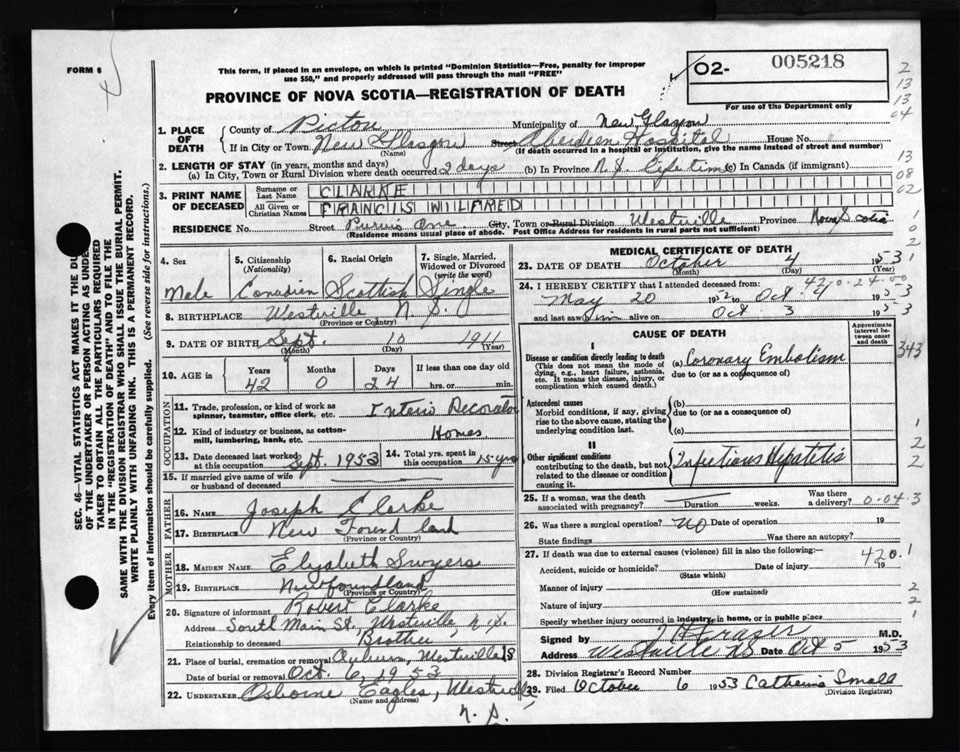 FORM 6
This form, if placed in an envelope, on which is printed "Dominion Statistics—Free, penalty for improper
use $50," and properly addressed will pass through the mail "FREE"
02- 005218
For use of the Department only
PROVINCE OF NOVA SCOTIA—REGISTRATION OF DEATH
2
13
04
13
08
02
1
0
2
SEC. 46—VITAL STATISTICS ACT MAKES IT THE DU
OF THE UNDERTAKER OR PERSON ACTING AS UNDER
TAKER TO OBTAIN ALL THE PARTICULARS REQUIRED
IN THE "REGISTRATION OF DEATH" AND TO FILE THE
SAME WITH THE DIVISION REGISTRAR WHO SHALL ISSUE THE BURIAL PERMIT.
WRITE PLAINLY WITH UNFADING INK. THIS IS A PERMANENT RECORD.
Every item of information should be carefully supplied. (See reverse side for instructions.)
1. PLACE OF DEATH
County of Pictou Municipality of New Glasgow
If in City or Town New Glasgow Street Aberdeen Hospital House No.
(Name) (If death occurred in a hospital or institution, give the name instead of street and number)
2. LENGTH OF STAY (in years, months and days)
(a) In City, Town or Rural Division where death occurred 2 days (b) In Province N.S. Life time (c) In Canada (if immigrant)
3. PRINT NAME OF DECEASED
Surname or Last Name CLARKE
All Given or Christian Names FRANCIS WILFRED
RESIDENCE No. Street Purvis Ave City, Town or Rural Division Westville Province Nova Scotia
(Residence means usual place of abode. Post Office Address for residents in rural parts not sufficient)
4. Sex 5. Citizenship (Nationality) 6. Racial Origin 7. Single, Married, Widowed or Divorced (write the word)
Male Canadian Scottish Single
8. BIRTHPLACE Westville N.S.
(Province or Country)
9. DATE OF BIRTH Sept. 10 1911
(Month) (Day) (Year)
10. AGE in Years Months Days If less than one day
42 0 24 hrs. or min.
OCCUPATION
11. Trade, profession, or kind of work as spinner, teamster, office clerk, etc. Interio Decorator
12. Kind of industry or business, as cotton-mill, lumbering, bank, etc. Homes
13. Date deceased last worked at this occupation Sept. 1953 14. Total yrs. spent in this occupation 15 yrs
15. If married give name of wife or husband of deceased
FATHER
16. NAME Joseph Clarke
17. BIRTHPLACE New Found land
(Province or Country)
MOTHER
18. MAIDEN NAME Elizabeth Swyers
19. BIRTHPLACE Newfoundland
(Province or Country)
20. Signature of informant Robert Clarke
Address South Main St, Westville N.S.
Relationship to deceased Brother
21. Place of burial, cremation or removal Auburn, Westville NS
Date of burial or removal Oct. 6, 1953
22. UNDERTAKER Osborne Eagles, Westville
(Name and address)
N. S.
MEDICAL CERTIFICATE OF DEATH
23. DATE OF DEATH October 4 1953
(Month) (Day) (Year)
42-0-24-00
24. I HEREBY CERTIFY that I attended deceased from:
May 20 1952 to Oct 4 1953
and last saw him alive on Oct. 3 1953
CAUSE OF DEATH
Approximate interval between onset and death
I
Disease or condition directly leading to death
(This does not mean the mode of dying, e.g., heart failure, asthenia, etc. It means the disease, injury, or complication which caused death.)
(a) Coronary Embolism
due to (or as a consequence of)
343
Antecedent causes
Morbid conditions, if any, giving rise to the above cause, stating the underlying condition last.
(b)
due to (or as a consequence of)
(c)
1
2
2
II
Other significant conditions
contributing to the death, but not related to the disease or condition causing it.
Infectious Hepatitis
25. If a woman, was the death associated with pregnancy? Duration weeks. Was there a delivery?
0-04-3
26. Was there a surgical operation? NO Date of operation 19
State findings Was there an autopsy?
27. If death was due to external causes (violence) fill in also the following:—
420.1
Accident, suicide or homicide? Date of injury 19
(State which)
Manner of injury
(How sustained)
2
Nature of injury
2
Specify whether injury occurred in industry, in home, or in public place
1
Signed by J H Frazer M.D.
Address Westville NS Date Oct 5 1953
28. Division Registrar's Record Number
29. Filed October 6 1953 Catharine Small
(Division Registrar)